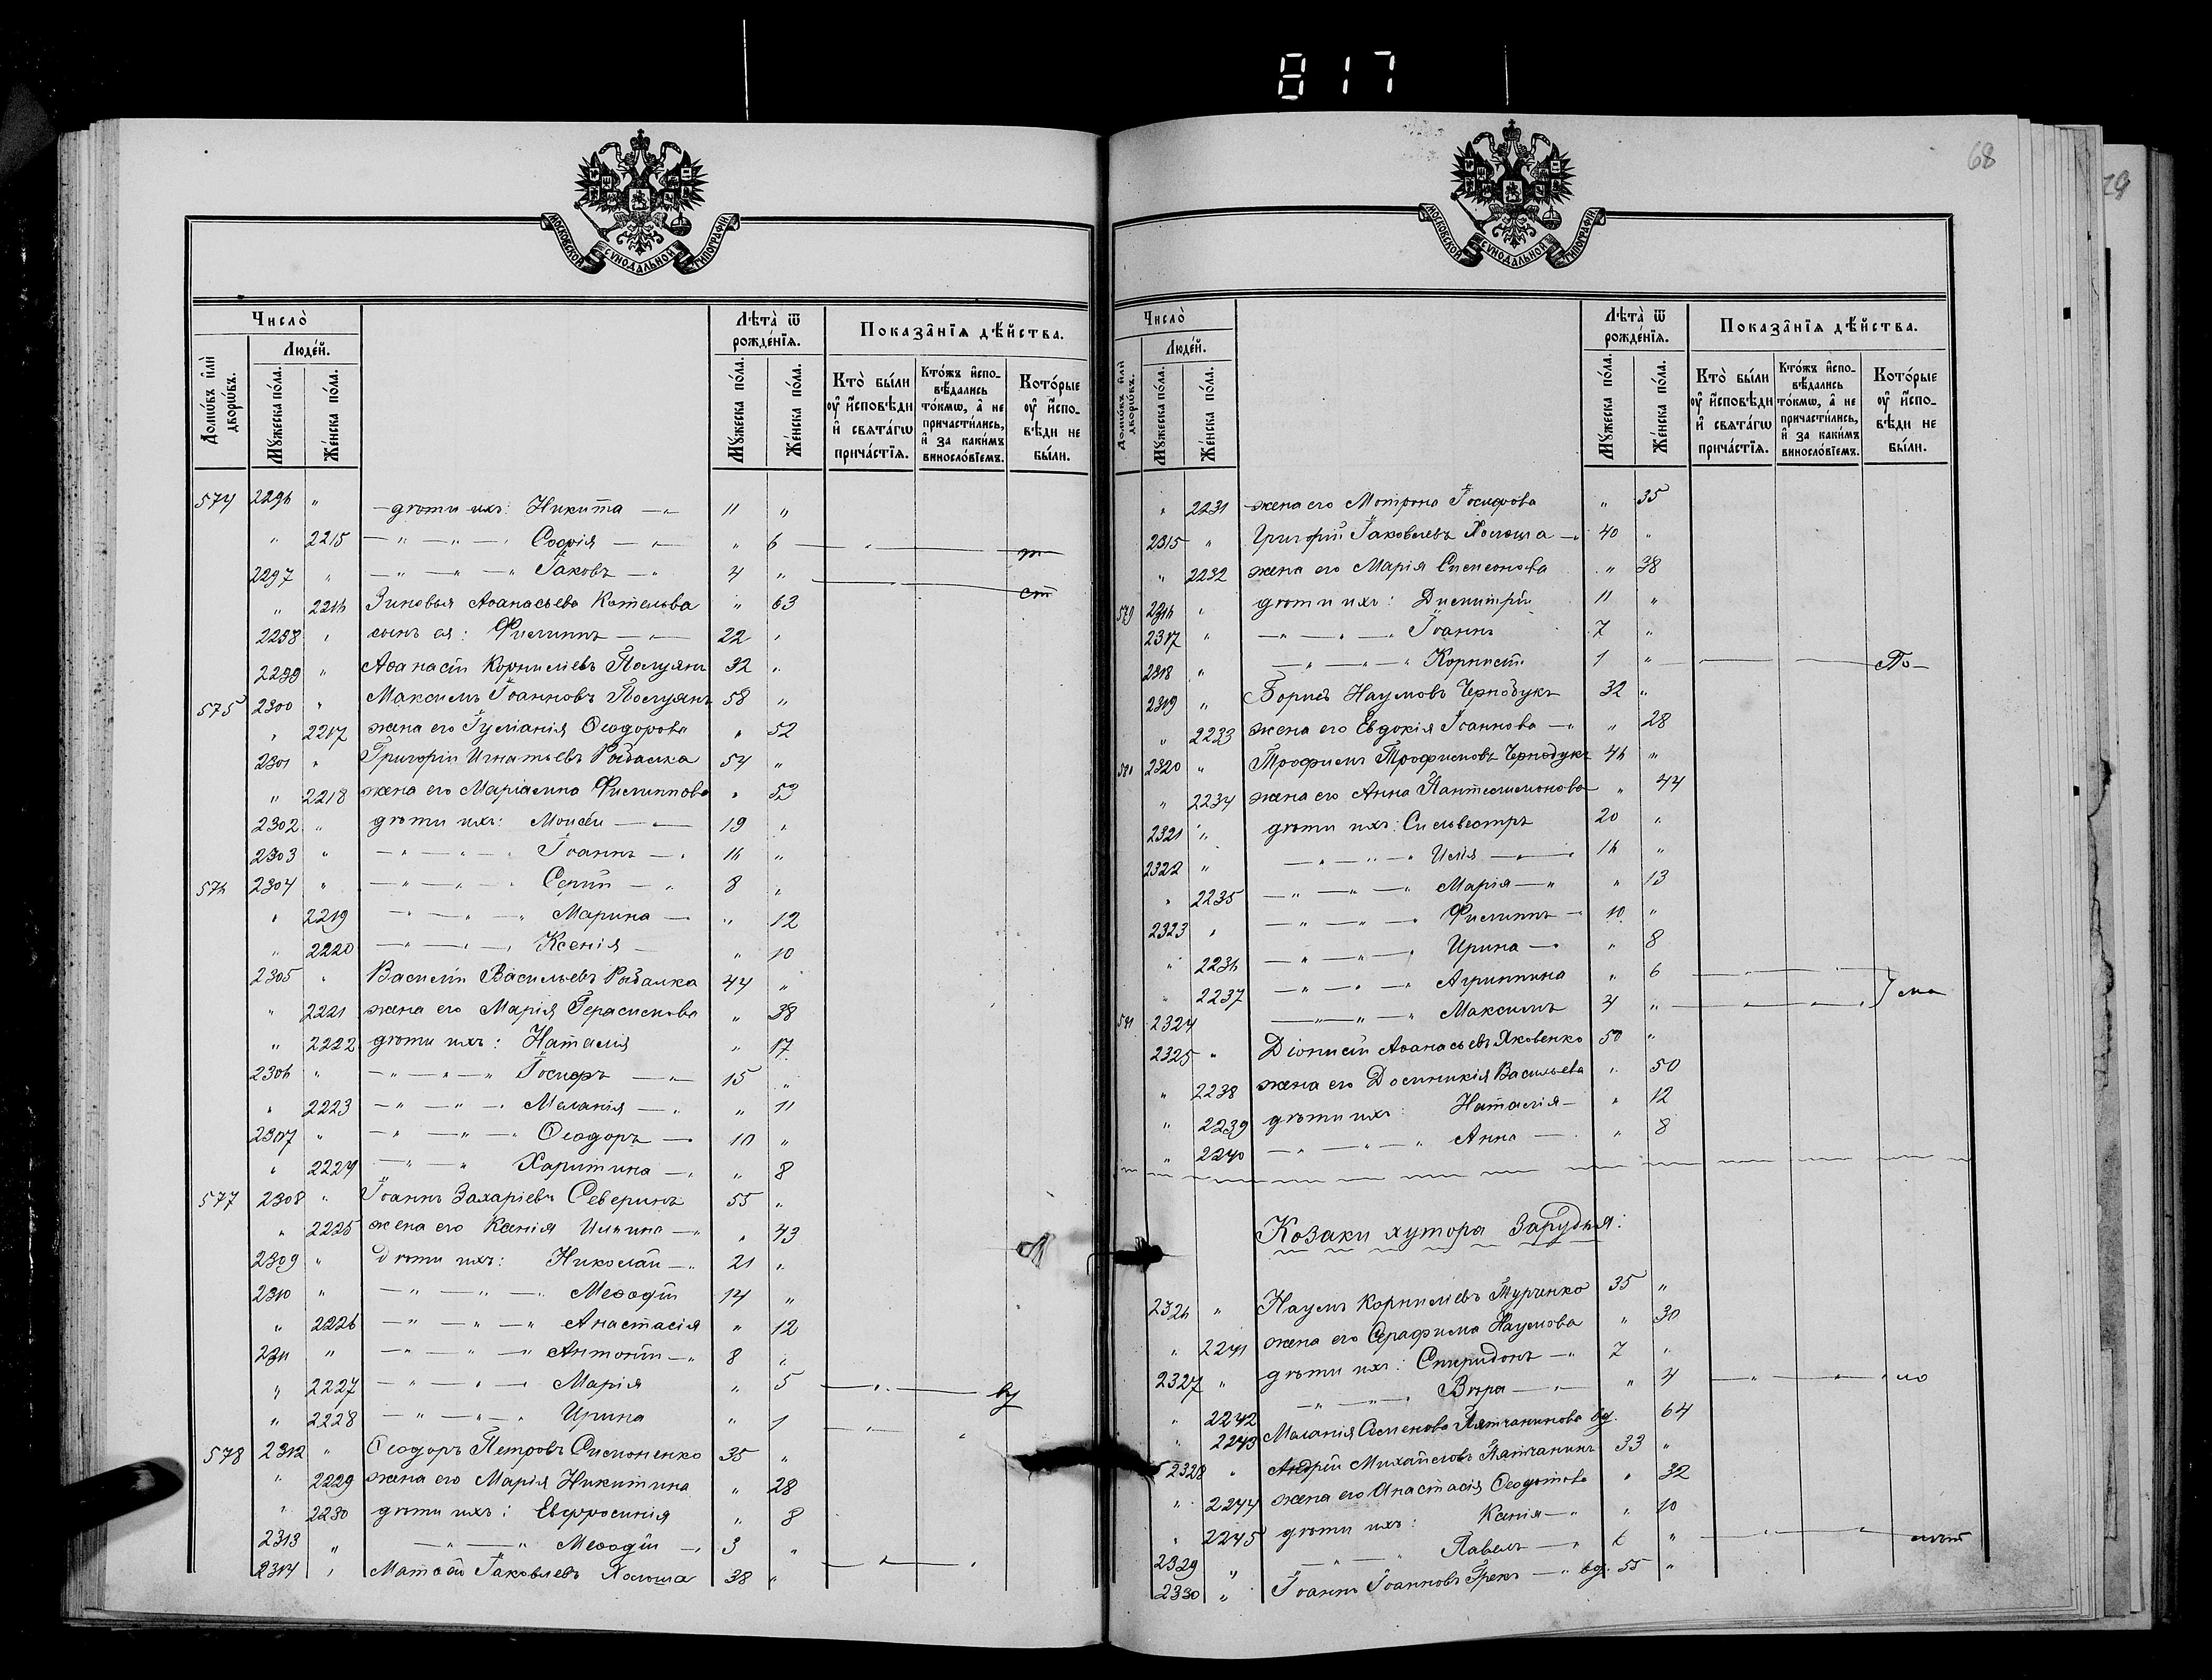 817
68
19
МОСКОВСКОЙ СѴНОДАЛЬНОЙ ТИПОГРАФІИ
Число̀
Домѡ́въ и҆лѝ дворѡ́въ.
Люде́й.
Мꙋ́жеска по́ла.
Же́нска по́ла.
Лѣ́та ѿ рожде́нїѧ.
Мꙋ́жеска по́ла.
Же́нска по́ла.
Показа̑нїѧ дѣ́йства.
Кто̀ бы́ли ᲂу҆ и҆́сповѣди и҆ свѧта́гѡ прича́стїѧ.
Кто́жъ и҆спо-вѣ́дались то́кмѡ, а҆ не причасти́лись, и҆ за каки́мъ виносло́вїемъ.
Кото́рые ᲂу҆ и҆́спо-вѣди не бы́ли.
574 2296 " дѣти ихъ: Никита — " 11 "
" 2215 — " — " — " Софія — " — " 6
2297 " — " — " — " Іаковъ — " 4 "
" 2216 Зиновья Аѳанасьева Котельва " 63
2298 " сынъ ея: Филиппъ — " — 22 "
2299 " Аѳанасій Корниліевъ Полуянъ 32 "
575 2300 " Максимъ Іоанновъ Полуянъ 58 "
" 2217 жена его Гуліанія Ѳеодорова " 52
2301 " Григорій Игнатьевъ Рыбалка 54 "
" 2218 жена его Маріамна Филиппова " 53
2302 " дѣти ихъ: Моисей — " — 19 "
2303 " — " — " — " Іоаннъ — " 16 "
576 2304 " — " — " — " Сергій — " 8 "
" 2219 — " — " — " Марина — " 12
" 2220 — " — " — " Ксенія — " 10
2305 " Василій Васильевъ Рыбалка 44 "
" 2221 жена его Марія Герасимова " 38
" 2222 дѣти ихъ: Наталія " 17
2306 " — " — " — " Іосифъ — " — 15 "
" 2223 — " — " — " Меланія — " " 11
2307 " — " — " — " Ѳеодоръ — " 10 "
" 2224 — " — " Харитина — " " 8
577 2308 " Іоаннъ Захаріевъ Северинъ 55 "
" 2225 жена его Ксенія Ильина — " " 43
2309 " дѣти ихъ: Николай — " 21 "
2310 " — " — " — " Меѳодій 14 "
" 2226 — " — " — " Анастасія " 12
2311 " — " — " — " Антоній — " 8 "
" 2227 — " — " — " Марія " 5
" 2228 — " — " — " Ирина " 1
578 2312 " Ѳеодоръ Петровъ Симоненко 35 "
" 2229 жена его Марія Никитина " 28
" 2230 дѣти ихъ: Евфросинія " 8
2313 " — " — " Меѳодій — " 3 "
2314 " Матѳей Іаковлевъ Холоша 38 "
Число̀
Домѡ́въ и҆лѝ дворѡ́въ.
Люде́й.
Мꙋ́жеска по́ла.
Же́нска по́ла.
Лѣ́та ѿ рожде́нїѧ.
Мꙋ́жеска по́ла.
Же́нска по́ла.
Показа̑нїѧ дѣ́йства.
Кто̀ бы́ли ᲂу҆ и҆́сповѣди и҆ свѧта́гѡ прича́стїѧ.
Кто́жъ и҆спо-вѣ́дались то́кмѡ, а҆ не причасти́лись, и҆ за каки́мъ виносло́вїемъ.
Кото́рые ᲂу҆ и҆́спо-вѣди не бы́ли.
МОСКОВСКОЙ СѴНОДАЛЬНОЙ ТИПОГРАФІИ
" 2231 жена его Мотрона Іосифова " 35
2315 " Григорій Іаковлевъ Холоша — " 40 "
" 2232 жена его Марія Симеонова " 38
579 2316 " дѣти ихъ: Димитрій 11 "
2317 " — " — " — " Іоаннъ 7 "
2318 " — " — " — " Корнилій 1 "
2319 " Борисъ Наумовъ Чернобукъ 32 "
" 2233 жена его Евдокія Іоаннова — " " 28
580 2320 " Трофимъ Трофимовъ Чернобукъ 46 "
" 2234 жена его Анна Пантелимонова " 44
2321 " дѣти ихъ: Сильвестръ 20 "
2322 " — " — " — " Илія — " — " 16 "
" 2235 — " — " — " Марія — " " 13
2323 " — " — " — " Филиппъ — " 10 "
" 2236 — " — " — " Ирина — " " 8
" 2237 — " — " — " Агриппина " 6
581 2324 — " — " — " Максимъ 4 "
2325 " Діонисій Аѳанасьевъ Яковенко 50 "
" 2238 жена его Домникія Васильева " 50
" 2239 дѣти ихъ: Наталія — " 12
" 2240 — " — " — " Анна — " " 8
Козаки хутора Зарудья:
2326 " Наумъ Корниліевъ Турченко 35 "
" 2241 жена его Серафима Наумова " 30
2327 " дѣти ихъ: Спиридонъ — " 7 "
" 2242 — " — " Вѣра — " — " 4
" 2243 Меланія Семенова Пятчанинова вд. 64
2328 " Андрей Михайловъ Пятчанинъ 33 "
" 2244 жена его Анастасія Ѳеодотова " 32
" 2245 дѣти ихъ: Ксенія — " " 10
2329 " — " — " Павелъ — " 6 "
2330 " Іоаннъ Іоанновъ Грекъ — " вд. 55 "